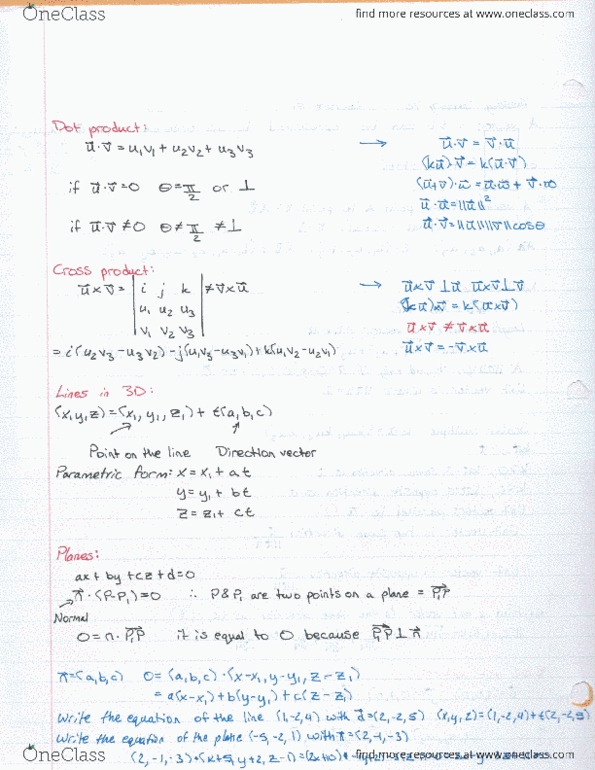 OneClass find more resources at www.oneclass.com
Dot product:
u⃗·v⃗ = u₁v₁ + u₂v₂ + u₃v₃ → u⃗·v⃗ = v⃗·u⃗
(ku⃗)·v⃗ = k(u⃗·v⃗)
if u⃗·v⃗=0 θ=π/2 or ⊥ (u⃗+v⃗)·w⃗ = u⃗·w⃗ + v⃗·w⃗
u⃗·u⃗ = ||u⃗||²
if u⃗·v⃗ ≠0 θ≠π/2 ≠⊥ u⃗·v⃗ = ||u⃗||||v⃗|| cosθ
Cross product:
u⃗×v⃗ = | i j k | ≠ v⃗×u⃗ → u⃗×v⃗ ⊥ u⃗ u⃗×v⃗ ⊥ v⃗
| u₁ u₂ u₃ | (ku⃗)×v⃗ = k(u⃗×v⃗)
| v₁ v₂ v₃ | u⃗×v⃗ ≠ v⃗×u⃗
= i(u₂v₃ - u₃v₂) - j(u₁v₃ - u₃v₁) + k(u₁v₂ - u₂v₁) u⃗×v⃗ = -v⃗×u⃗
Lines in 3D:
(x,y,z) = (x₁, y₁, z₁) + t(a,b,c)
Point on the line Direction vector
Parametric form: x = x₁ + at
y = y₁ + bt
z = z₁ + ct
Planes:
ax + by + cz + d = 0
n⃗·(P-P₁) = 0 ∴ P & P₁ are two points on a plane = P₁P⃗
Normal
0 = n·P₁P⃗ it is equal to 0 because P₁P⃗ ⊥ n⃗
n⃗ = (a,b,c) 0 = (a,b,c)·(x-x₁, y-y₁, z-z₁)
= a(x-x₁) + b(y-y₁) + c(z-z₁)
Write the equation of the line (1,-2,4) with d⃗=(2,-2,5) (x,y,z) = (1,-2,4) + t(2,-2,5)
Write the equation of the plane (-5,-2,1) with n⃗=(2,-1,-3)
(2,-1,-3)·(x+5, y+2, z-1) = (2x+10)
OneClass find more resources at www.oneclass.com